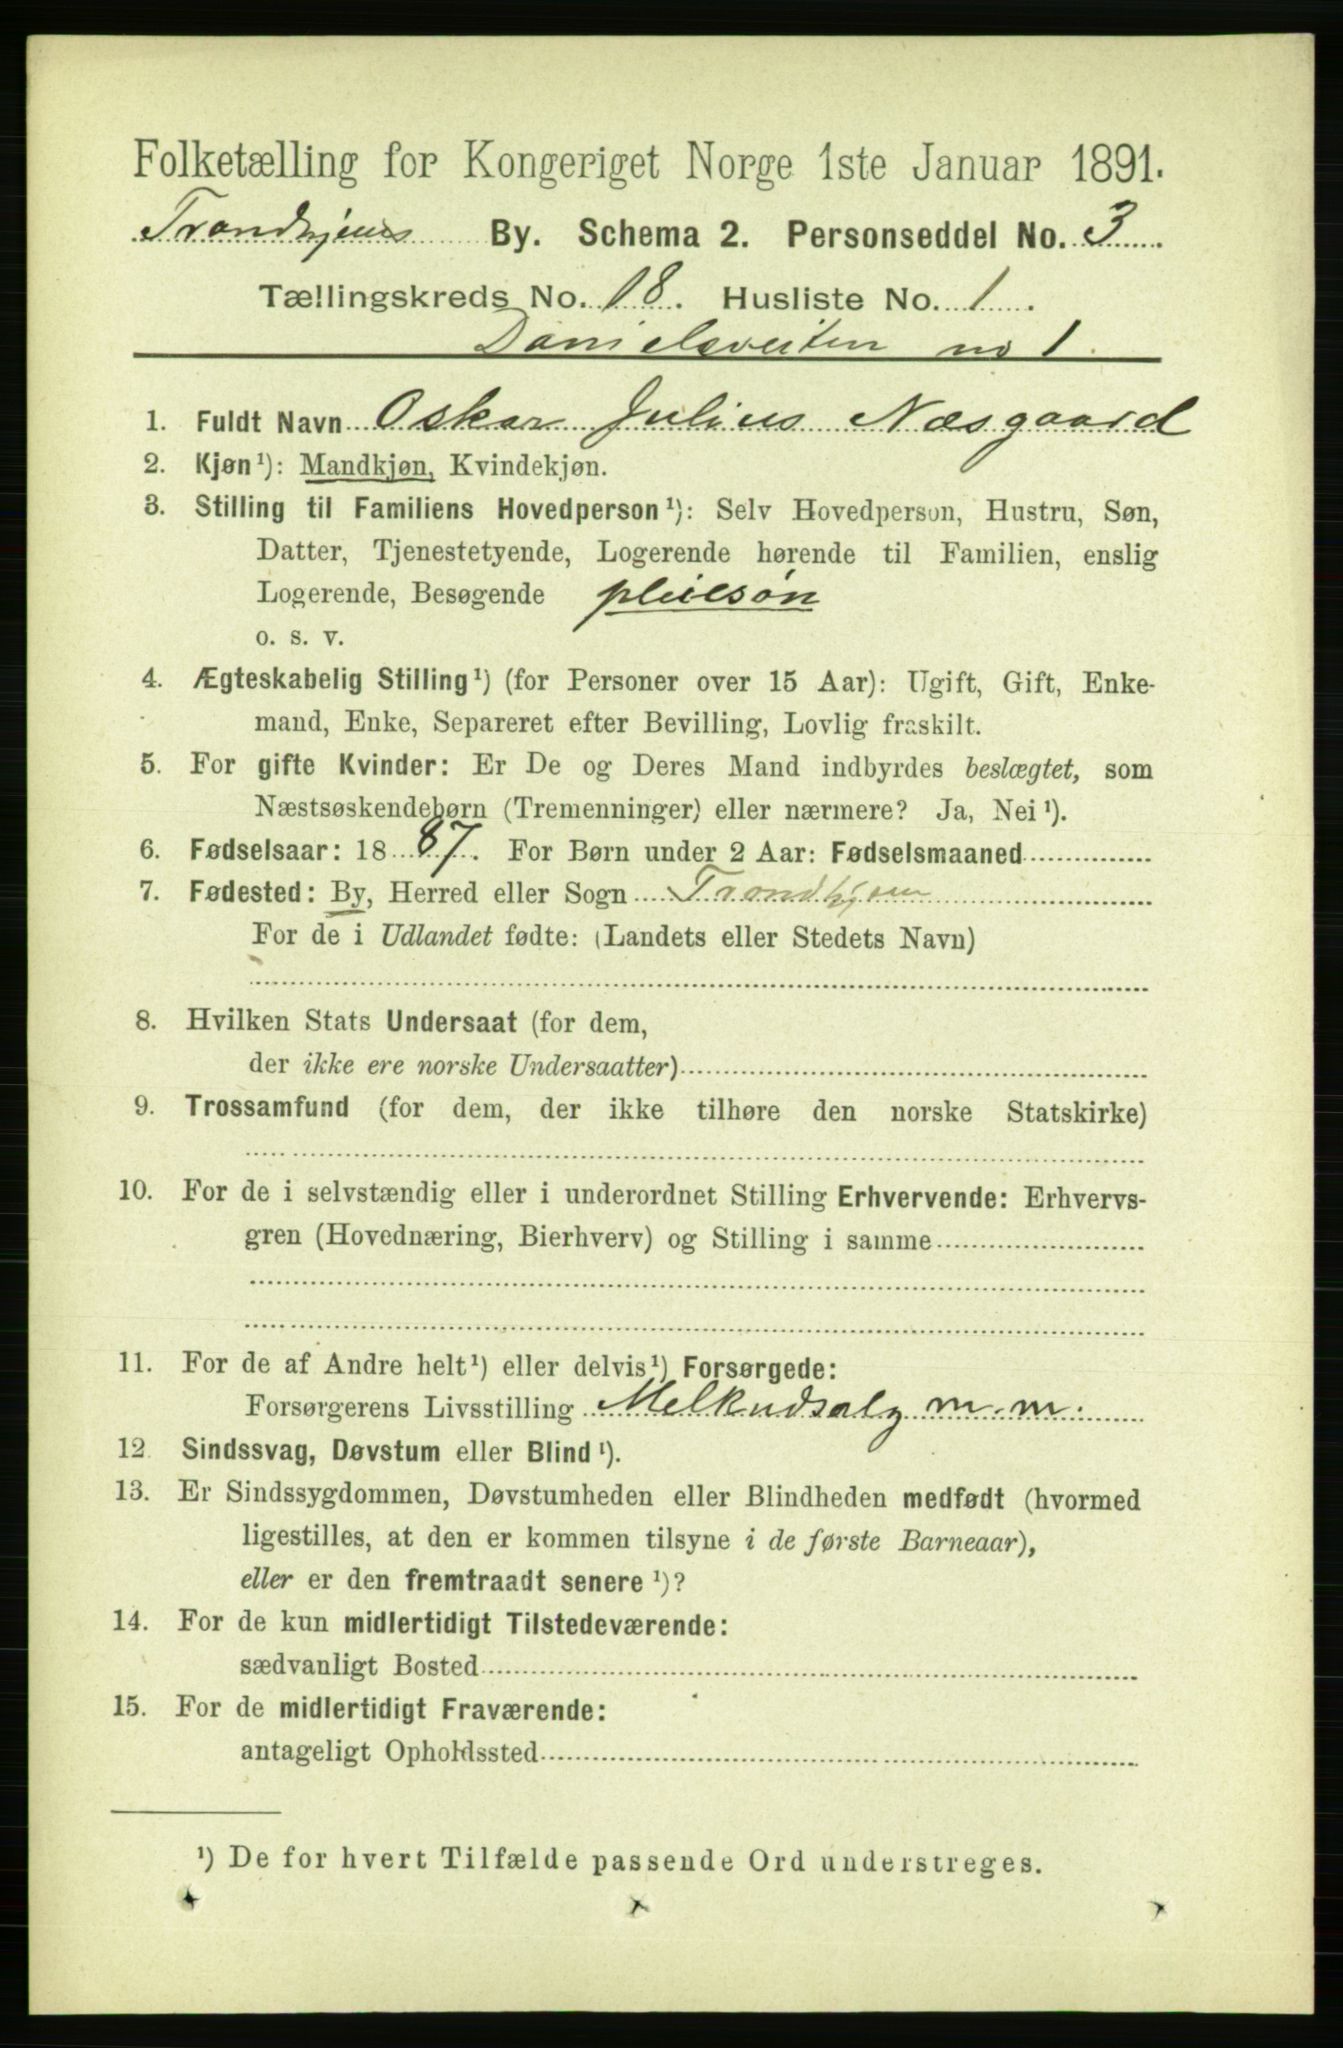 Folketælling for Kongeriget Norge 1ste Januar 1891.
Trondhjems By. Schema 2. Personseddel No. 3
Tællingskreds No. 18. Husliste No. 1.
Danielsveiten no 1.
1. Fuldt Navn Oskar Julius Næsgaard
2. Kjøn¹): Mandkjøn, Kvindekjøn.
3. Stilling til Familiens Hovedperson¹): Selv Hovedperson, Hustru, Søn,
Datter, Tjenestetyende, Logerende hørende til Familien, enslig
Logerende, Besøgende pleiesøn
o. s. v.
4. Ægteskabelig Stilling¹) (for Personer over 15 Aar): Ugift, Gift, Enke-
mand, Enke, Separeret efter Bevilling, Lovlig fraskilt.
5. For gifte Kvinder: Er De og Deres Mand indbyrdes beslægtet, som
Næstsøskendebørn (Tremenninger) eller nærmere? Ja, Nei¹).
6. Fødselsaar: 1887. For Børn under 2 Aar: Fødselsmaaned
7. Fødested: By, Herred eller Sogn Trondhjem
For de i Udlandet fødte: (Landets eller Stedets Navn)
8. Hvilken Stats Undersaat (for dem,
der ikke ere norske Undersaatter)
9. Trossamfund (for dem, der ikke tilhøre den norske Statskirke)
10. For de i selvstændig eller i underordnet Stilling Erhvervende: Erhvervs-
gren (Hovednæring, Bierhverv) og Stilling i samme
11. For de af Andre helt¹) eller delvis¹) Forsørgede:
Forsørgerens Livsstilling Melkudsalg m.m.
12. Sindssvag, Døvstum eller Blind¹).
13. Er Sindssygdommen, Døvstumheden eller Blindheden medfødt (hvormed
ligestilles, at den er kommen tilsyne i de første Barneaar),
eller er den fremtraadt senere¹)?
14. For de kun midlertidigt Tilstedeværende:
sædvanligt Bosted
15. For de midlertidigt Fraværende:
antageligt Opholdssted
¹) De for hvert Tilfælde passende Ord understreges.